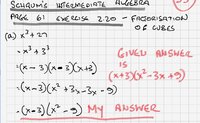 SCHAUM'S INTERMEDIATE ALGEBRA
PAGE 61 EXERCISE 2.20 - FACTORISATION OF CUBES
(a) x³ + 27
= x³ + 3³
= (x - 3)(x - 3)(x + 3)
= (x - 3)(x² + 3x - 3x - 9)
= (x - 3)(x² - 9) MY ANSWER
GIVEN ANSWER
IS
(x+3)(x² - 3x + 9)